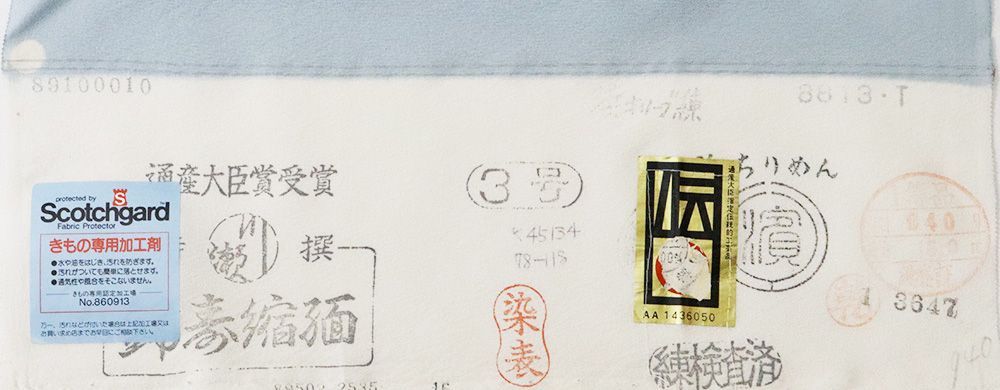 89100010
8613・T
通産大臣賞受賞
3号
ちりめん
protected by
Scotchgard™
Fabric Protector
きもの専用加工剤
●水や油をはじき、汚れを防ぎます。
●汚れがついても簡単に落とせます。
●通気性や風合をそこないません。
きもの専用認定加工場
No.860913
万一、汚れなどが付いた場合は上記加工場又は
お買い求め店までお早目にご相談下さい。
川瀬
撰
寿縮緬
K45134
78-118
染表
通産大臣指定伝統的工芸品
AA 1436050
濱
640
1 3647
練検査済
940